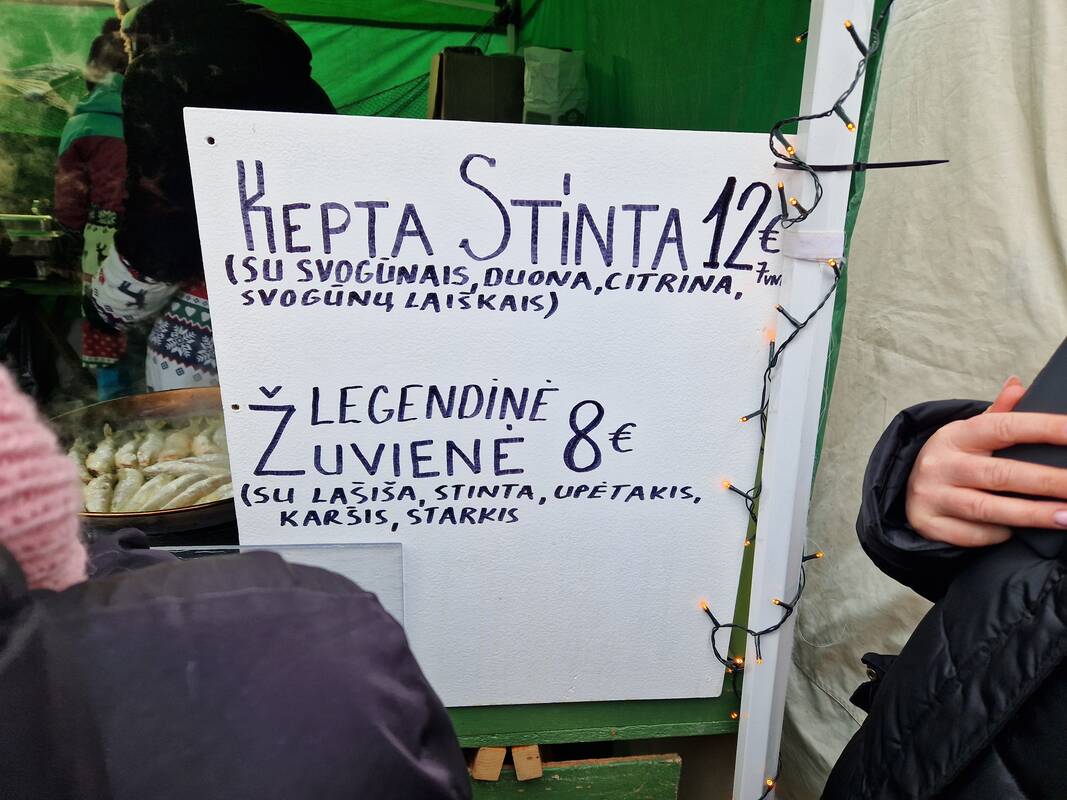 KEPTA STINTA 12€
(SU SVOGŪNAIS, DUONA, CITRINA, 7VNT
SVOGŪNŲ LAIŠKAIS)
LEGENDINĖ
ŽUVIENĖ 8€
(SU LAŠIŠA, STINTA, UPĖTAKIS,
KARŠIS, STARKIS